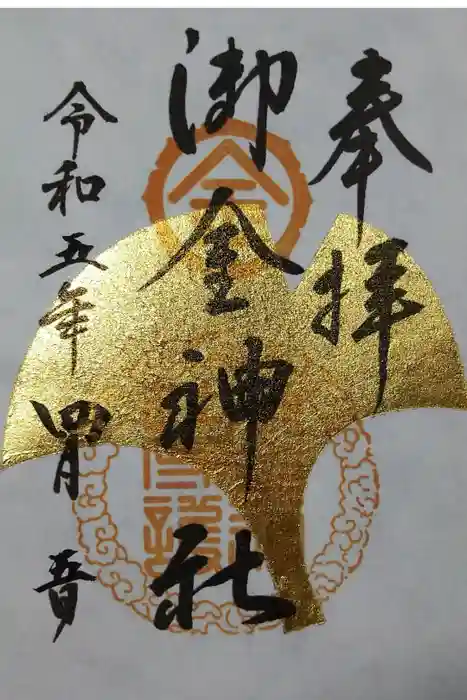 奉拝
御金神社
令和五年四月五日
金